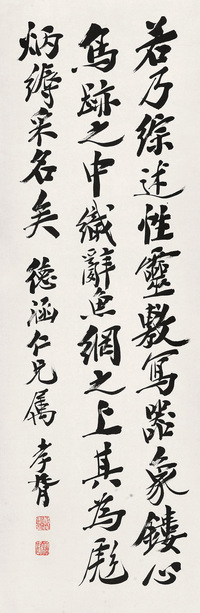 若乃綜述性靈敷寫器象鏤心
鳥跡之中織辭魚網之上其為彪
炳縟采名矣 德涵仁兄屬 孝胥